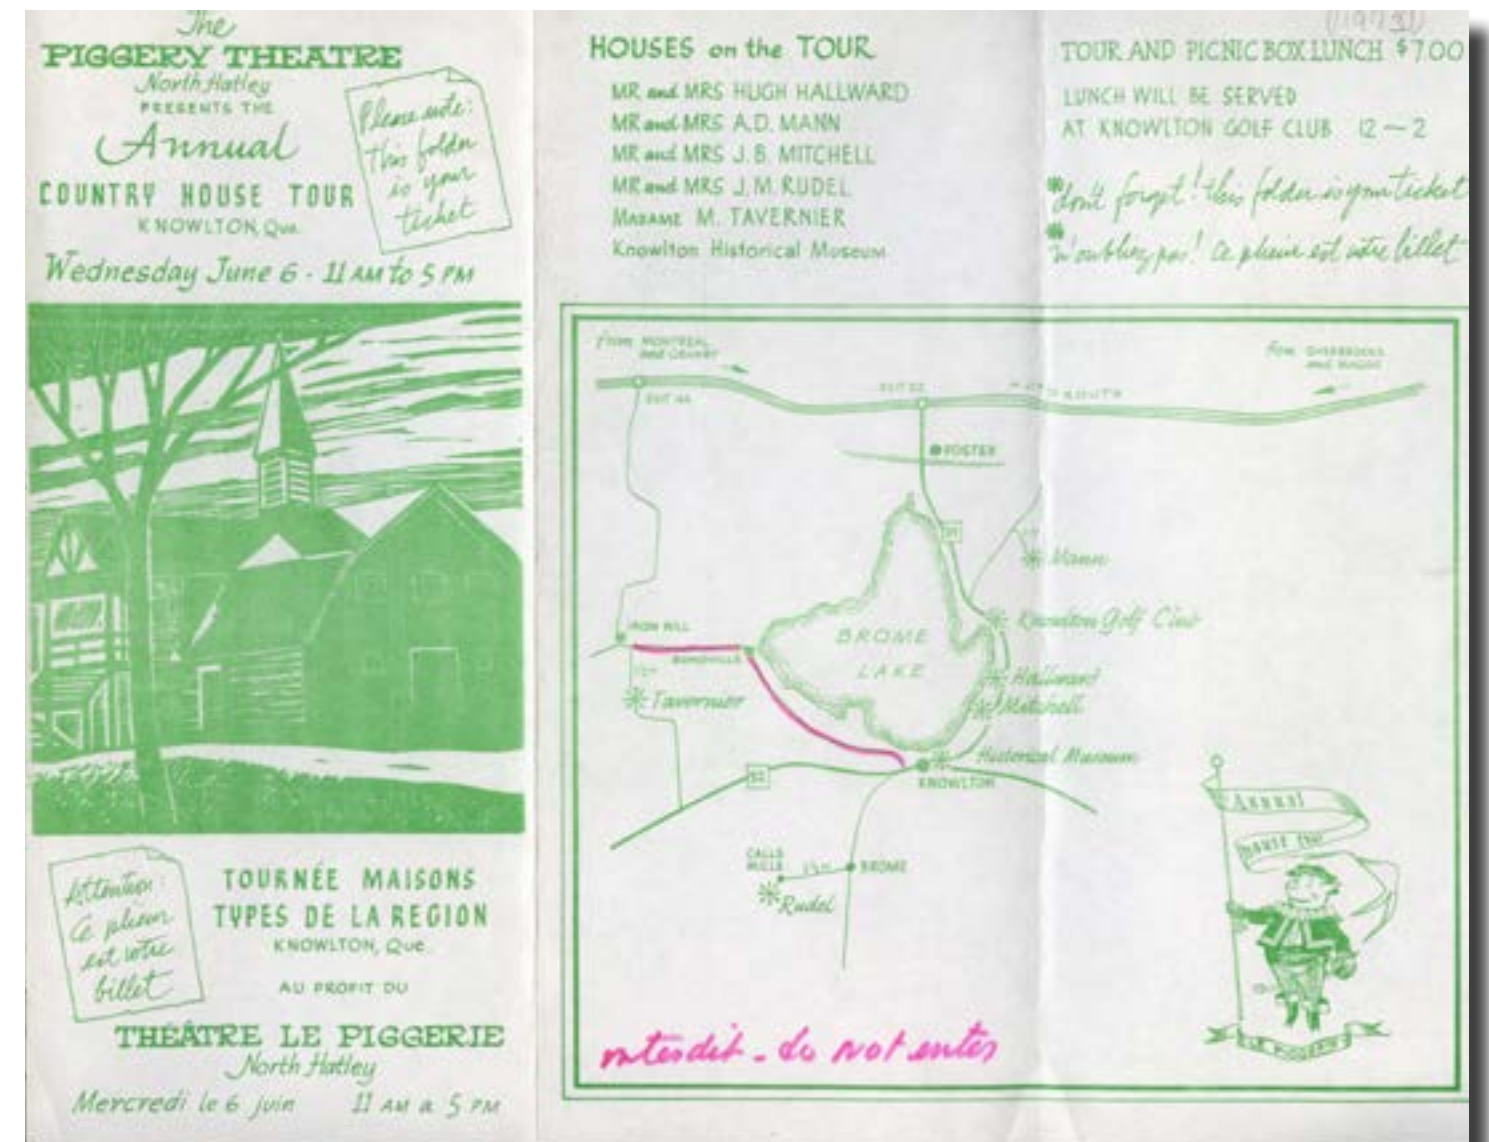 The
PIGGERY THEATRE
North Hatley
PRESENTS THE
Annual
COUNTRY HOUSE TOUR
KNOWLTON, Que.
Wednesday June 6 - 11 AM to 5 PM
Please note:
This folder
is your
ticket
Attention:
Ce plieur
est votre
billet
TOURNÉE MAISONS
TYPES DE LA REGION
KNOWLTON, Que.
AU PROFIT DU
THÉÂTRE LE PIGGERIE
North Hatley
Mercredi le 6 juin 11 AM a 5 PM
HOUSES on the TOUR
MR and MRS HUGH HALLWARD
MR and MRS A.D. MANN
MR and MRS J. B. MITCHELL
MR and MRS J. M. RUDEL
MADAME M. TAVERNIER
Knowlton Historical Museum
(1973)
TOUR AND PICNIC BOX LUNCH $7.00
LUNCH WILL BE SERVED
AT KNOWLTON GOLF CLUB 12 - 2
*don't forget! this folder is your ticket
*n'oubliez pas! Ce plieur est votre billet
From MONTREAL
and GRANBY
From SHERBROOKE
and MAGOG
EXIT
EXIT
FOSTER
Mann
Knowlton Golf Club
BROME
LAKE
IRON HILL
BONDVILLE
Tavernier
Hallward
Mitchell
Historical Museum
KNOWLTON
52
CALLS
MILLS
BROME
Rudel
ANNUAL
HOUSE TOUR
LE PIGGERIE
interdit - do not enter